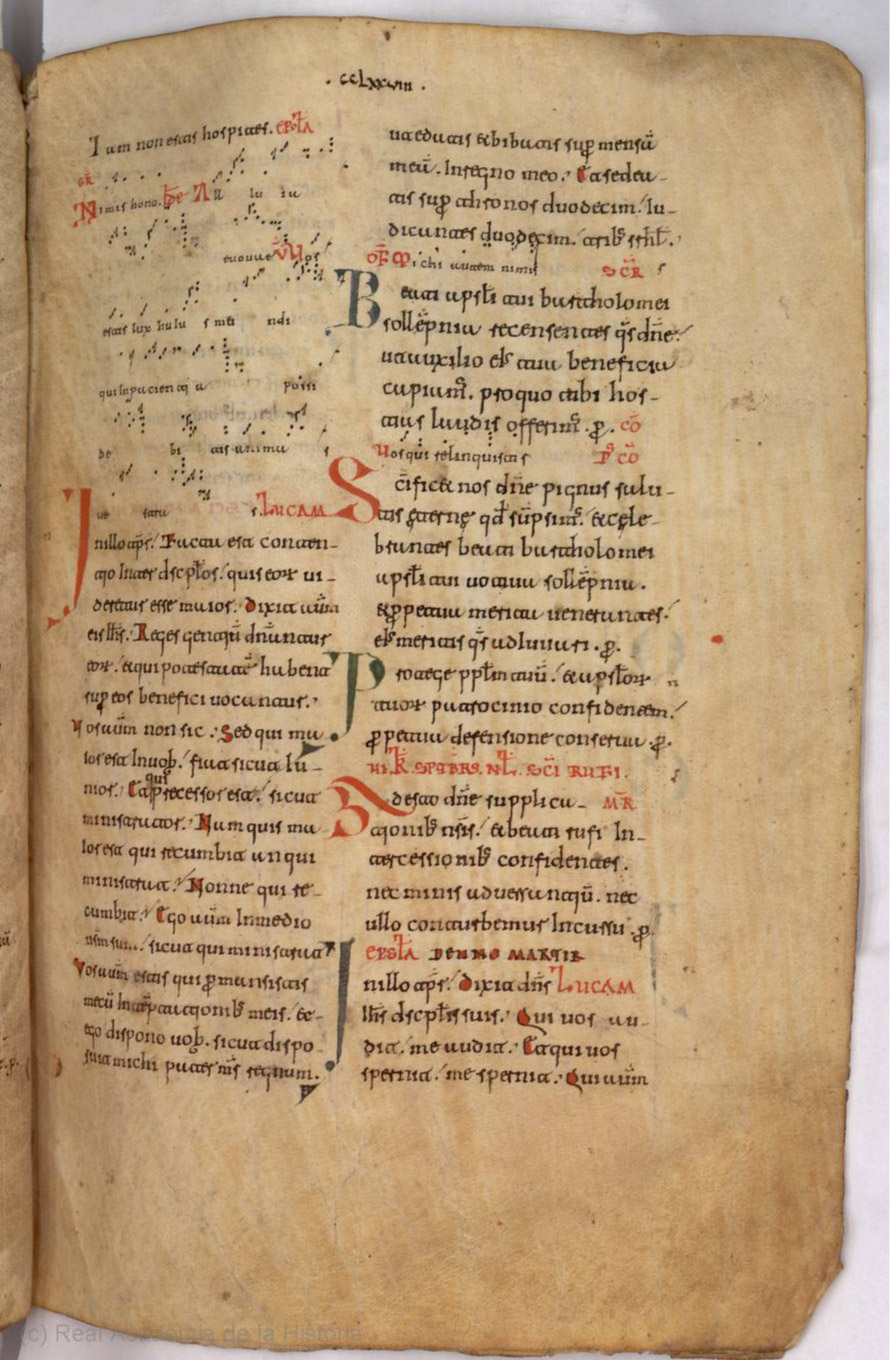 · CCLXXVIII ·
Iam non estis hospites. EPSTLA
GR
Nimis hono. HE Alle lu ia
euouae VII Vos
estis lux huiu s mun di
qui in paciencia possi
de bi tis animas
ue stras. LUCAM
In illo tp̄r. Facta est conten-
tio inter dscpłos. quis eor ui-
deretur esse maior. Dixit aūm
eis ihs. Reges gentiū dn̄antur
eor. et qui potestatē habent
sup eos benefici uocantur.
Vos aūm non sic. Sed qui ma-
ior est in uob. fiat sicut iu-
nior. Et qui p̄cessor est. sicut
ministrator. Nam quis ma-
ior est qui recumbit an qui
ministrat. Nonne qui re-
cumbit. Ego aūm in medio
urm sum. sicut qui ministrat.
Vos aūm estis qui p̄mansistis
mecū in temptationib meis. et
ego dispono uob. sicut dispo-
suit michi pater ms̄ regnum.
ut edatis et bibatis sup mensā
meā. In regno meo. Et sedea-
tis sup thronos duodecim. iu-
dicantes duodecim. trib isrhl.
OF Michi autem nimis SCR
Beati apsłi tui bartholomei
sollēpnia recensentes qs dn̄e.
ut auxilio eius tua beneficia
capiam. pro quo tibi hos-
tias laudis offerim. p. CO
Vos qui reliquistis P CO
Sc̄ificet nos dn̄e pignus salu-
tis eterne qd sūpsim. et cele-
brantes beati bartholomei
apsłi tui uotiua sollēpnia.
et p̄petuu meritau uenerantes.
eius meritis qs adiuuari. p.
Protege pp̄lm tuū. et apsłor
tuor patrocinio confidentem.
p̄petua defensione conserua. p.
VI. K. SPTBRS. NT. SC̄I RUFI.
Adesto dn̄e supplica- MR
tionib nris. et beati rufi in-
tercessionib confidentes.
nec minis aduersantiū. nec
ullo conturbemur incursu. p.
EPSTLA DE UNO MARTIR
In illo tp̄r. Dixit dn̄s LUCAM
ihs dscpłis suis. Qui uos au-
dit. me audit. Et qui uos
spernit. me spernit. Qui aūm
(c) Real Academia de la Historia